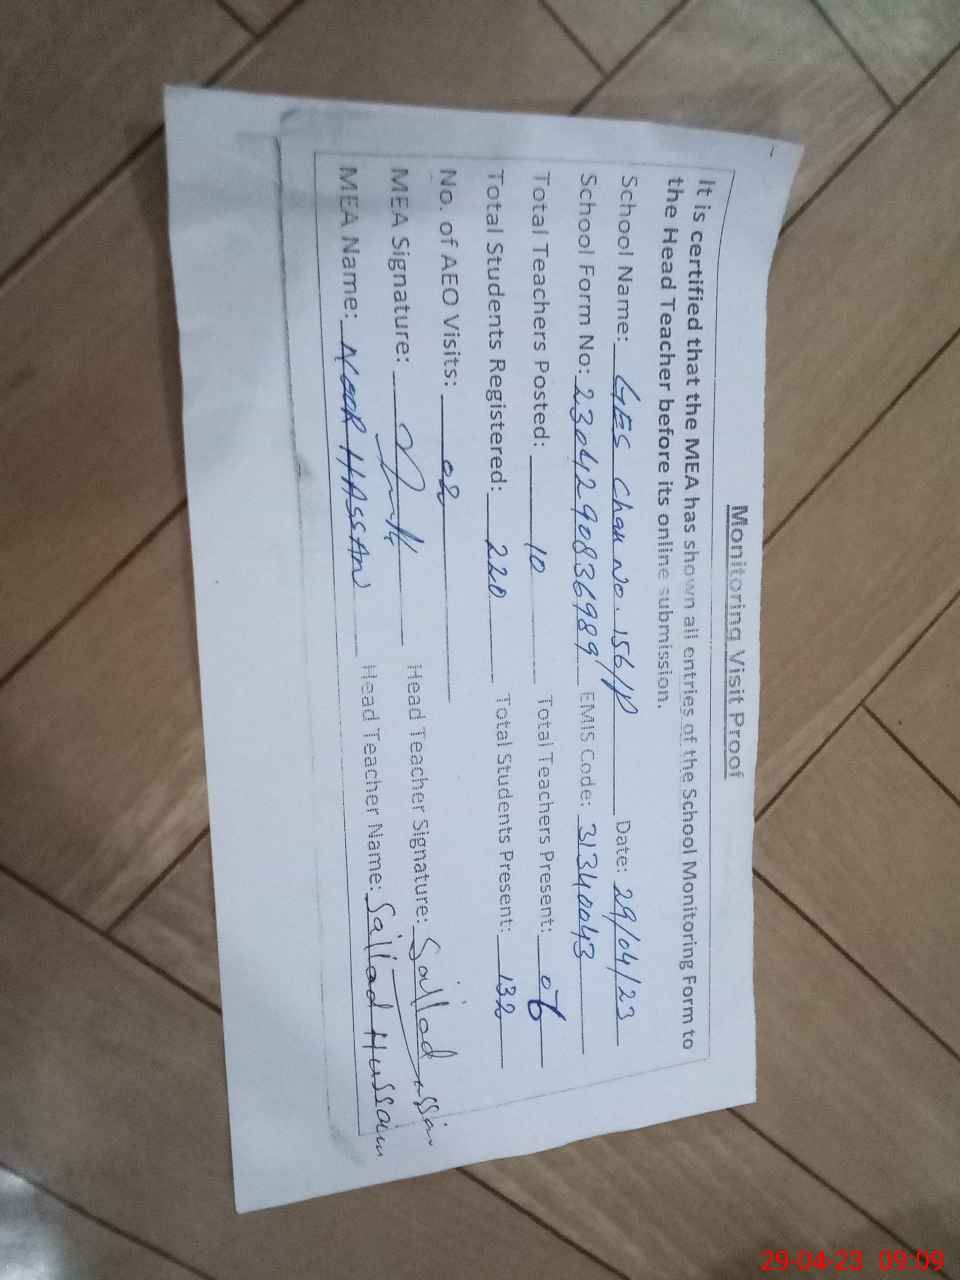 Monitoring Visit Proof
It is certified that the MEA has shown all entries of the School Monitoring Form to
the Head Teacher before its online submission.
School Name: GES Chak No. 156/P Date: 29/04/23
School Form No: 2304290836989 EMIS Code: 31340043
Total Teachers Posted: 10 Total Teachers Present: 06
Total Students Registered: 220 Total Students Present: 132
No. of AEO Visits: 02
MEA Signature: Head Teacher Signature:
MEA Name: NOOR HASSAN Head Teacher Name: Sajjad Hussain
29-04-23 09:09